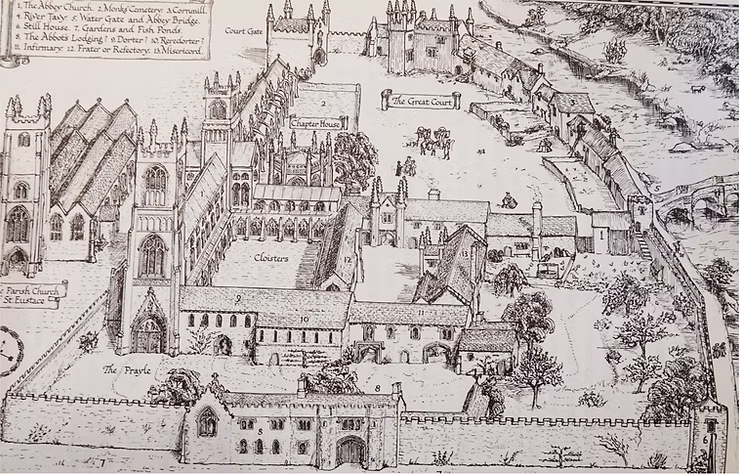 1. The Abbey Church. 2. Monks' Cemetery: 3. Cornmill.
4. River Tavy 5: Water Gate and Abbey Bridge.
6. Still House. 7. Gardens and Fish Ponds.
8. The Abbots Lodging? 9. Dorter? 10. Reredorter?
11. Infirmary: 12. Frater or Refectory: 13. Misericord.
Court Gate
2
The Great Court
Chapter House
5
Cloisters
12
13
Parish Church
St Eustace
9
10
11
The Prayle
8
6
7